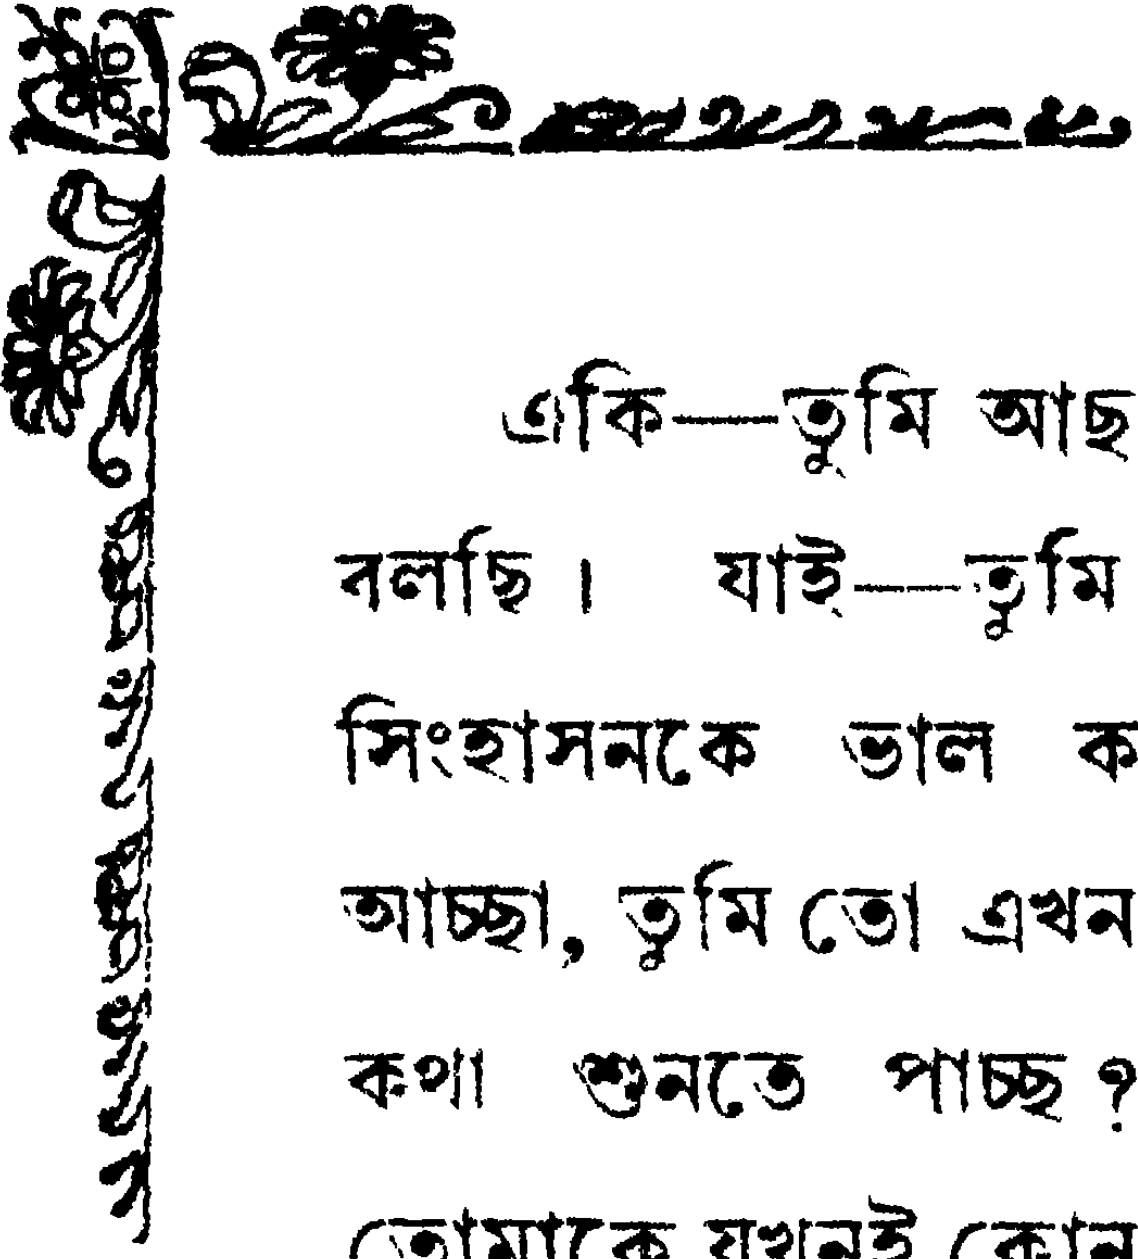 একি—তুমি আছ
বলছি। যাই—তুমি
সিংহাসনকে ভাল ক
আচ্ছা, তুমি তো এখন
কথা শুনতে পাচ্ছ?
তোমাকে যখনই কোন